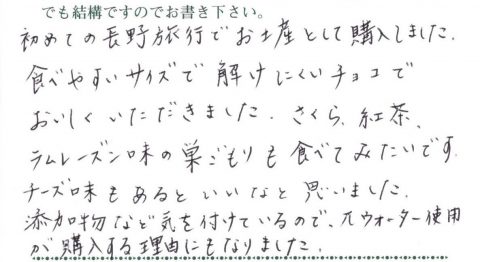 でも結構ですのでお書き下さい。
初めての長野旅行でお土産として購入しました.
食べやすいサイズで解けにくいチョコで
おいしくいただきました. さくら、紅茶、
ラムレーズン味の巣ごもりも食べてみたいです.
チーズ味もあるといいなと思いました.
添加物など気を付けているので、πウォーター使用
が購入する理由にもなりました.